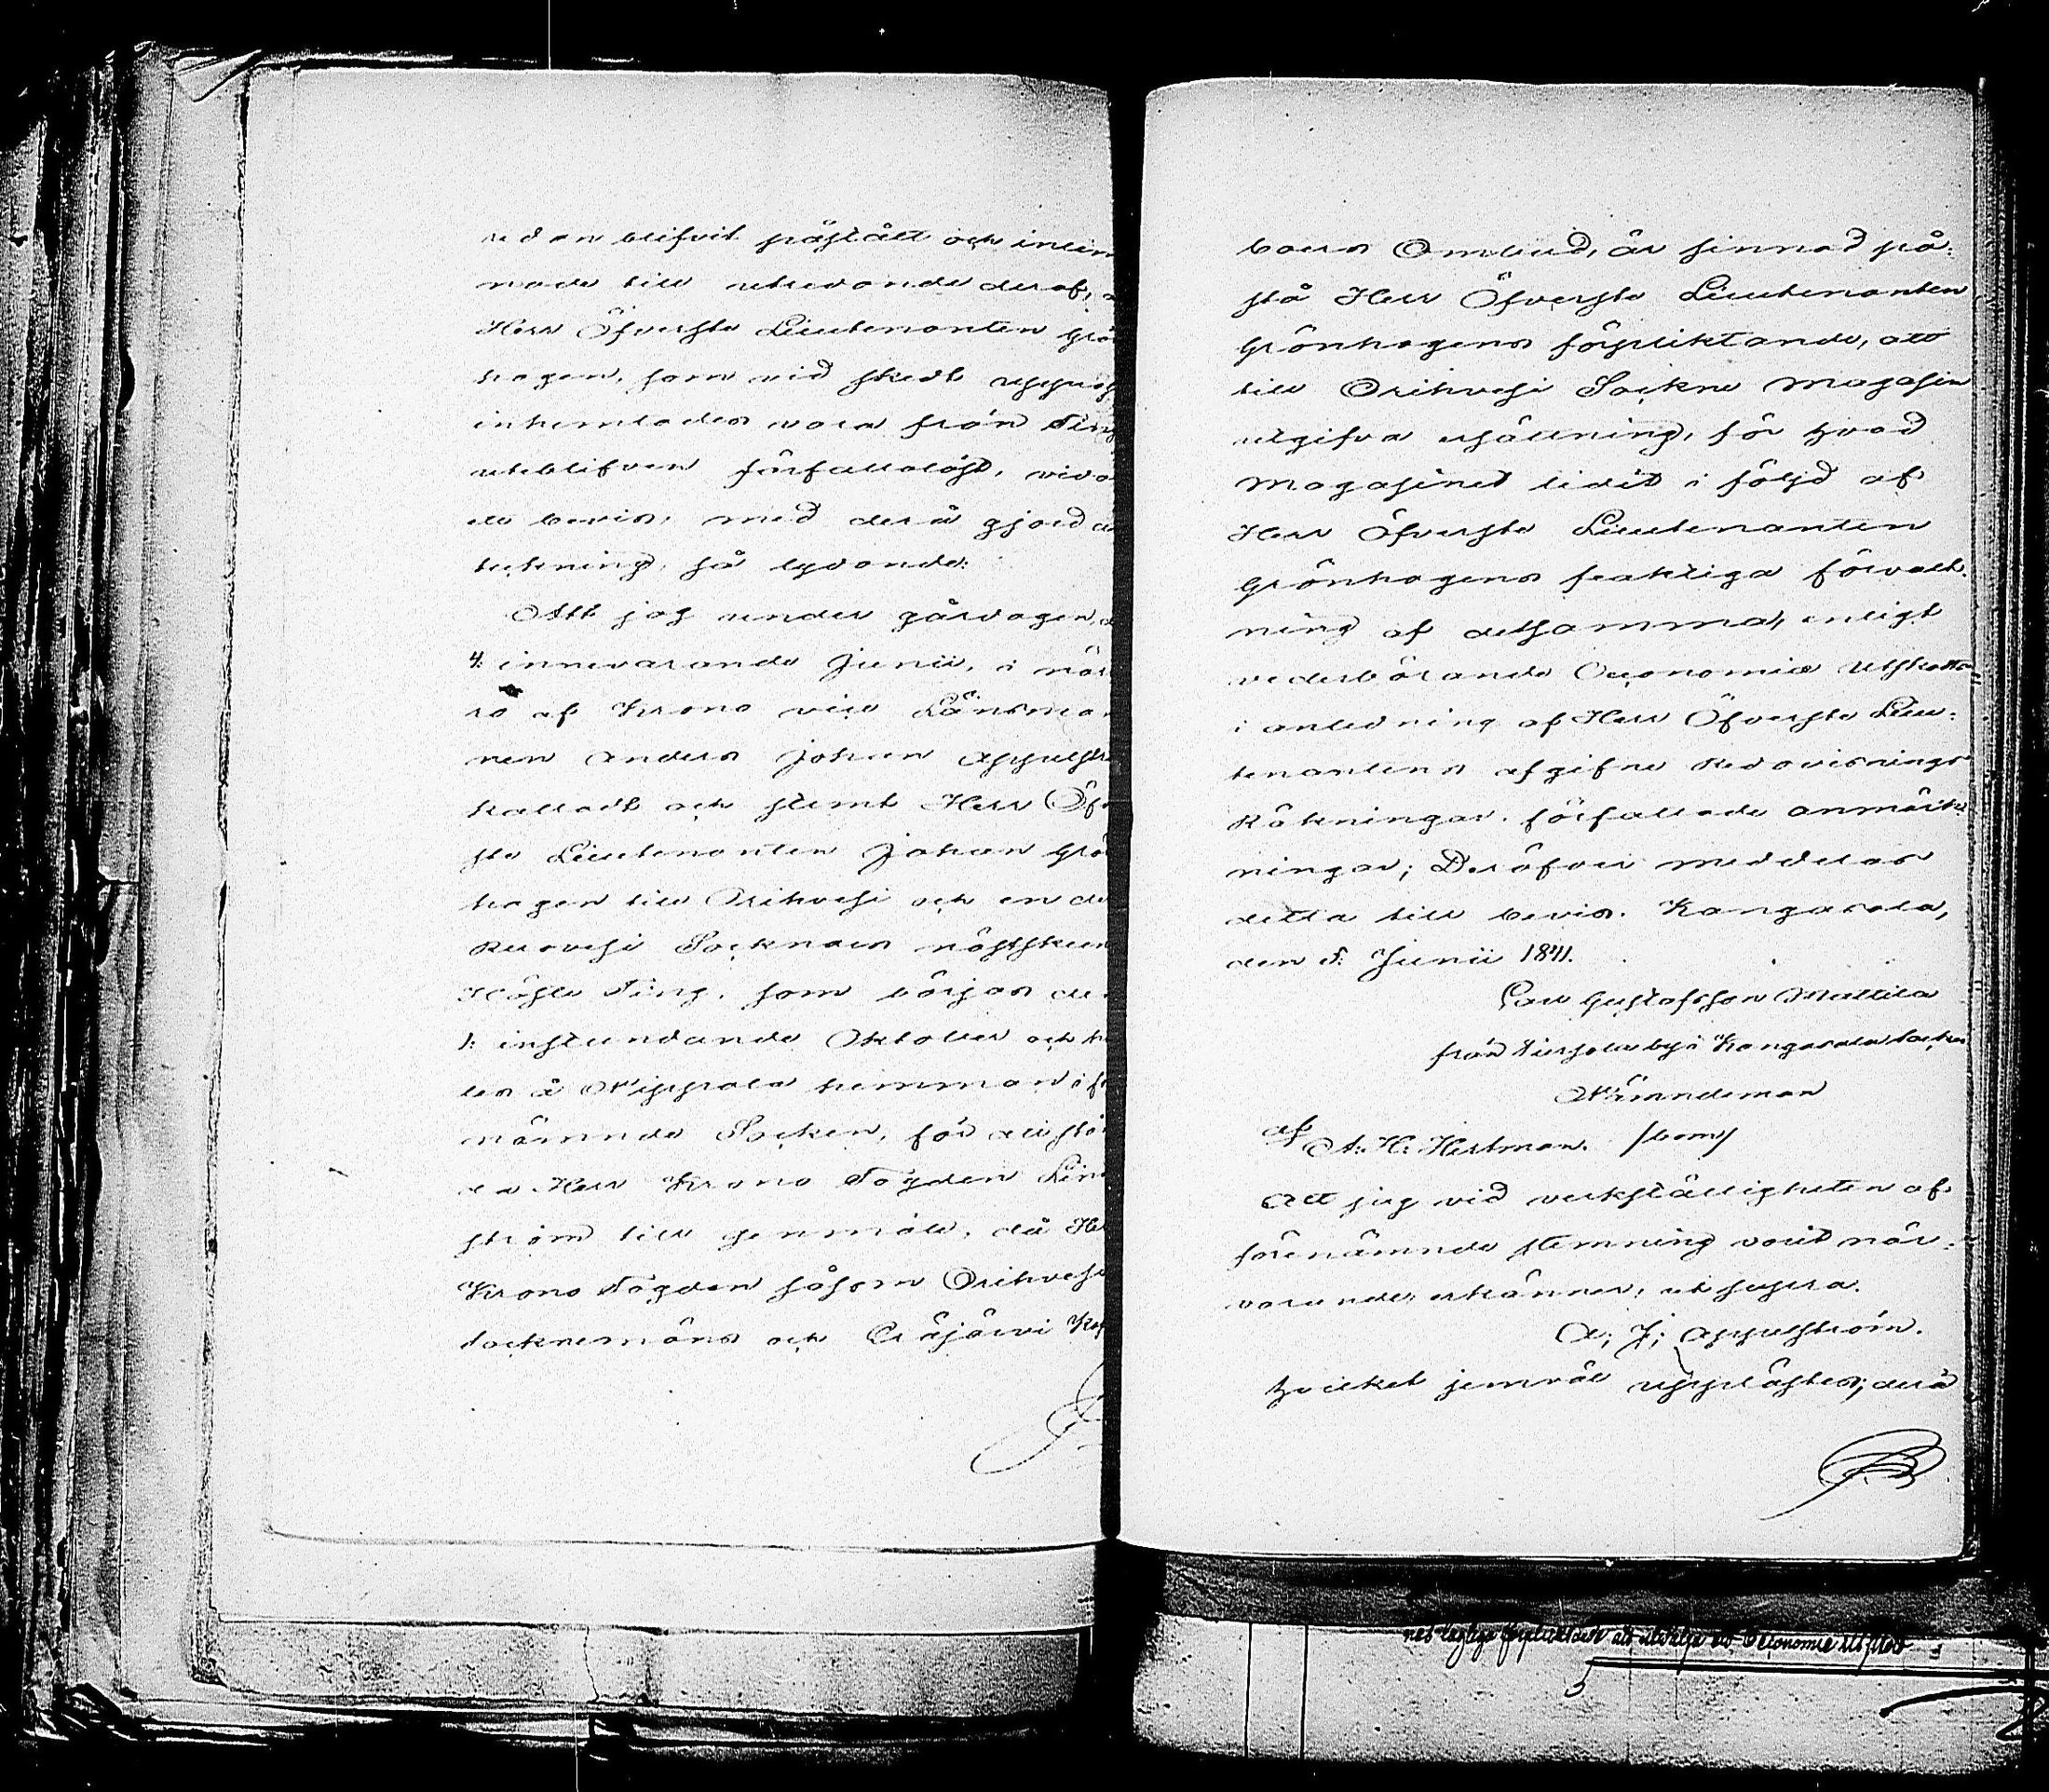 redan blifvit påstått och inlem
nade till utredande deraf, a
Herr Öfverste Lieutenanten Grön
hagen, som vid skedt upprop
inhemtades vara från Ting
uteblifven förfallolöst,
ett bevis, med derå gjord a
tekning, så lydande:
Att jag under gårdagen, d
4: innevarande Junii, i när
ro af Krono vice Länsma
nen Anders Johan Appelstr
kalladt och stämt Herr Öfv
ste Lieutenanten Johan Grön
hagen till Orihvesi och en de
Ruovesi Socknars nästkom
Höste Ting, som börjas de
1: instundande Oktober och h
les å Wippala hemman i f
nämnde Socken, för att stå
da Herr Krono Fogden Lind
ström till genmäle, då Her
Krono Fogden såsom Orihvesi
Socknemäns och Eräjärvi Kap
boers Ombud, är sinnad på:
stå Herr Öfverste Lieutenanten
Grönhagens förpliktande, att
till Orihvesi Sockne Magasin
utgifva ersättning, för hvad
Magasinet lidit i följd af
Herr Öfverste Lieutenanten
Grönhagens felaktiga förvalt:
ning af detsamma, enligt
vederbörande Oeconomie Utskotts
i anledning af Herr Öfverste Lieu:
tenantens afgifne Redovisnings
Räkningar, författade anmärk:
ningar; Deröfver meddelas
detta till bevis. Kangasala,
den 5: Junii 1841.
Carl Gustafsson Mattila
från by i Kangasala Socken
Nämndeman
af A: H: Heitman. /bom/
Att jag vid verkställigheten af
förenämnde stemning varit när:
varande, erkänner, ut supra.
A; J; Appelström.
hvilket jemväl upplästes; derå
att utvälja ett Oeconomie Utskott